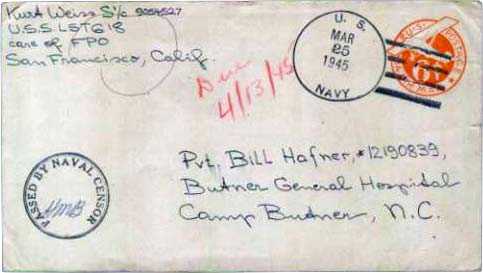 Kurt Weiss S1/c 9054527
U.S.S. LST 6 8
care of FPO
San Francisco, Calif.
U. S.
MAR
25
1945
NAVY
U.S. POSTAGE
6¢
AIR MAIL
4/13/45
PASSED BY NAVAL CENSOR
Pvt. Bill Hafner, #12190839,
Butner General Hospital
Camp Butner, N.C.